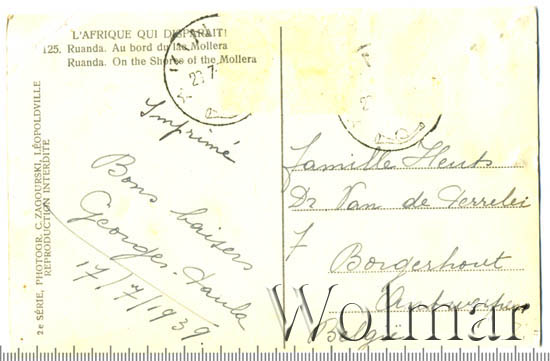 L'AFRIQUE QUI DISPARAIT!
125. Ruanda. Au bord du lac Mollera
Ruanda. On the Shores of the Mollera
2e SÉRIE, PHOTOGR. C. ZAGOURSKI, LÉOPOLDVILLE
REPRODUCTION INTERDITE
Imprimé
Bons baisers
Georges-Paula
17/7/1939
Famille Heuts
Dr Van de Perrelei
7
Borgerhout
Antwerpen
België
Wolmar